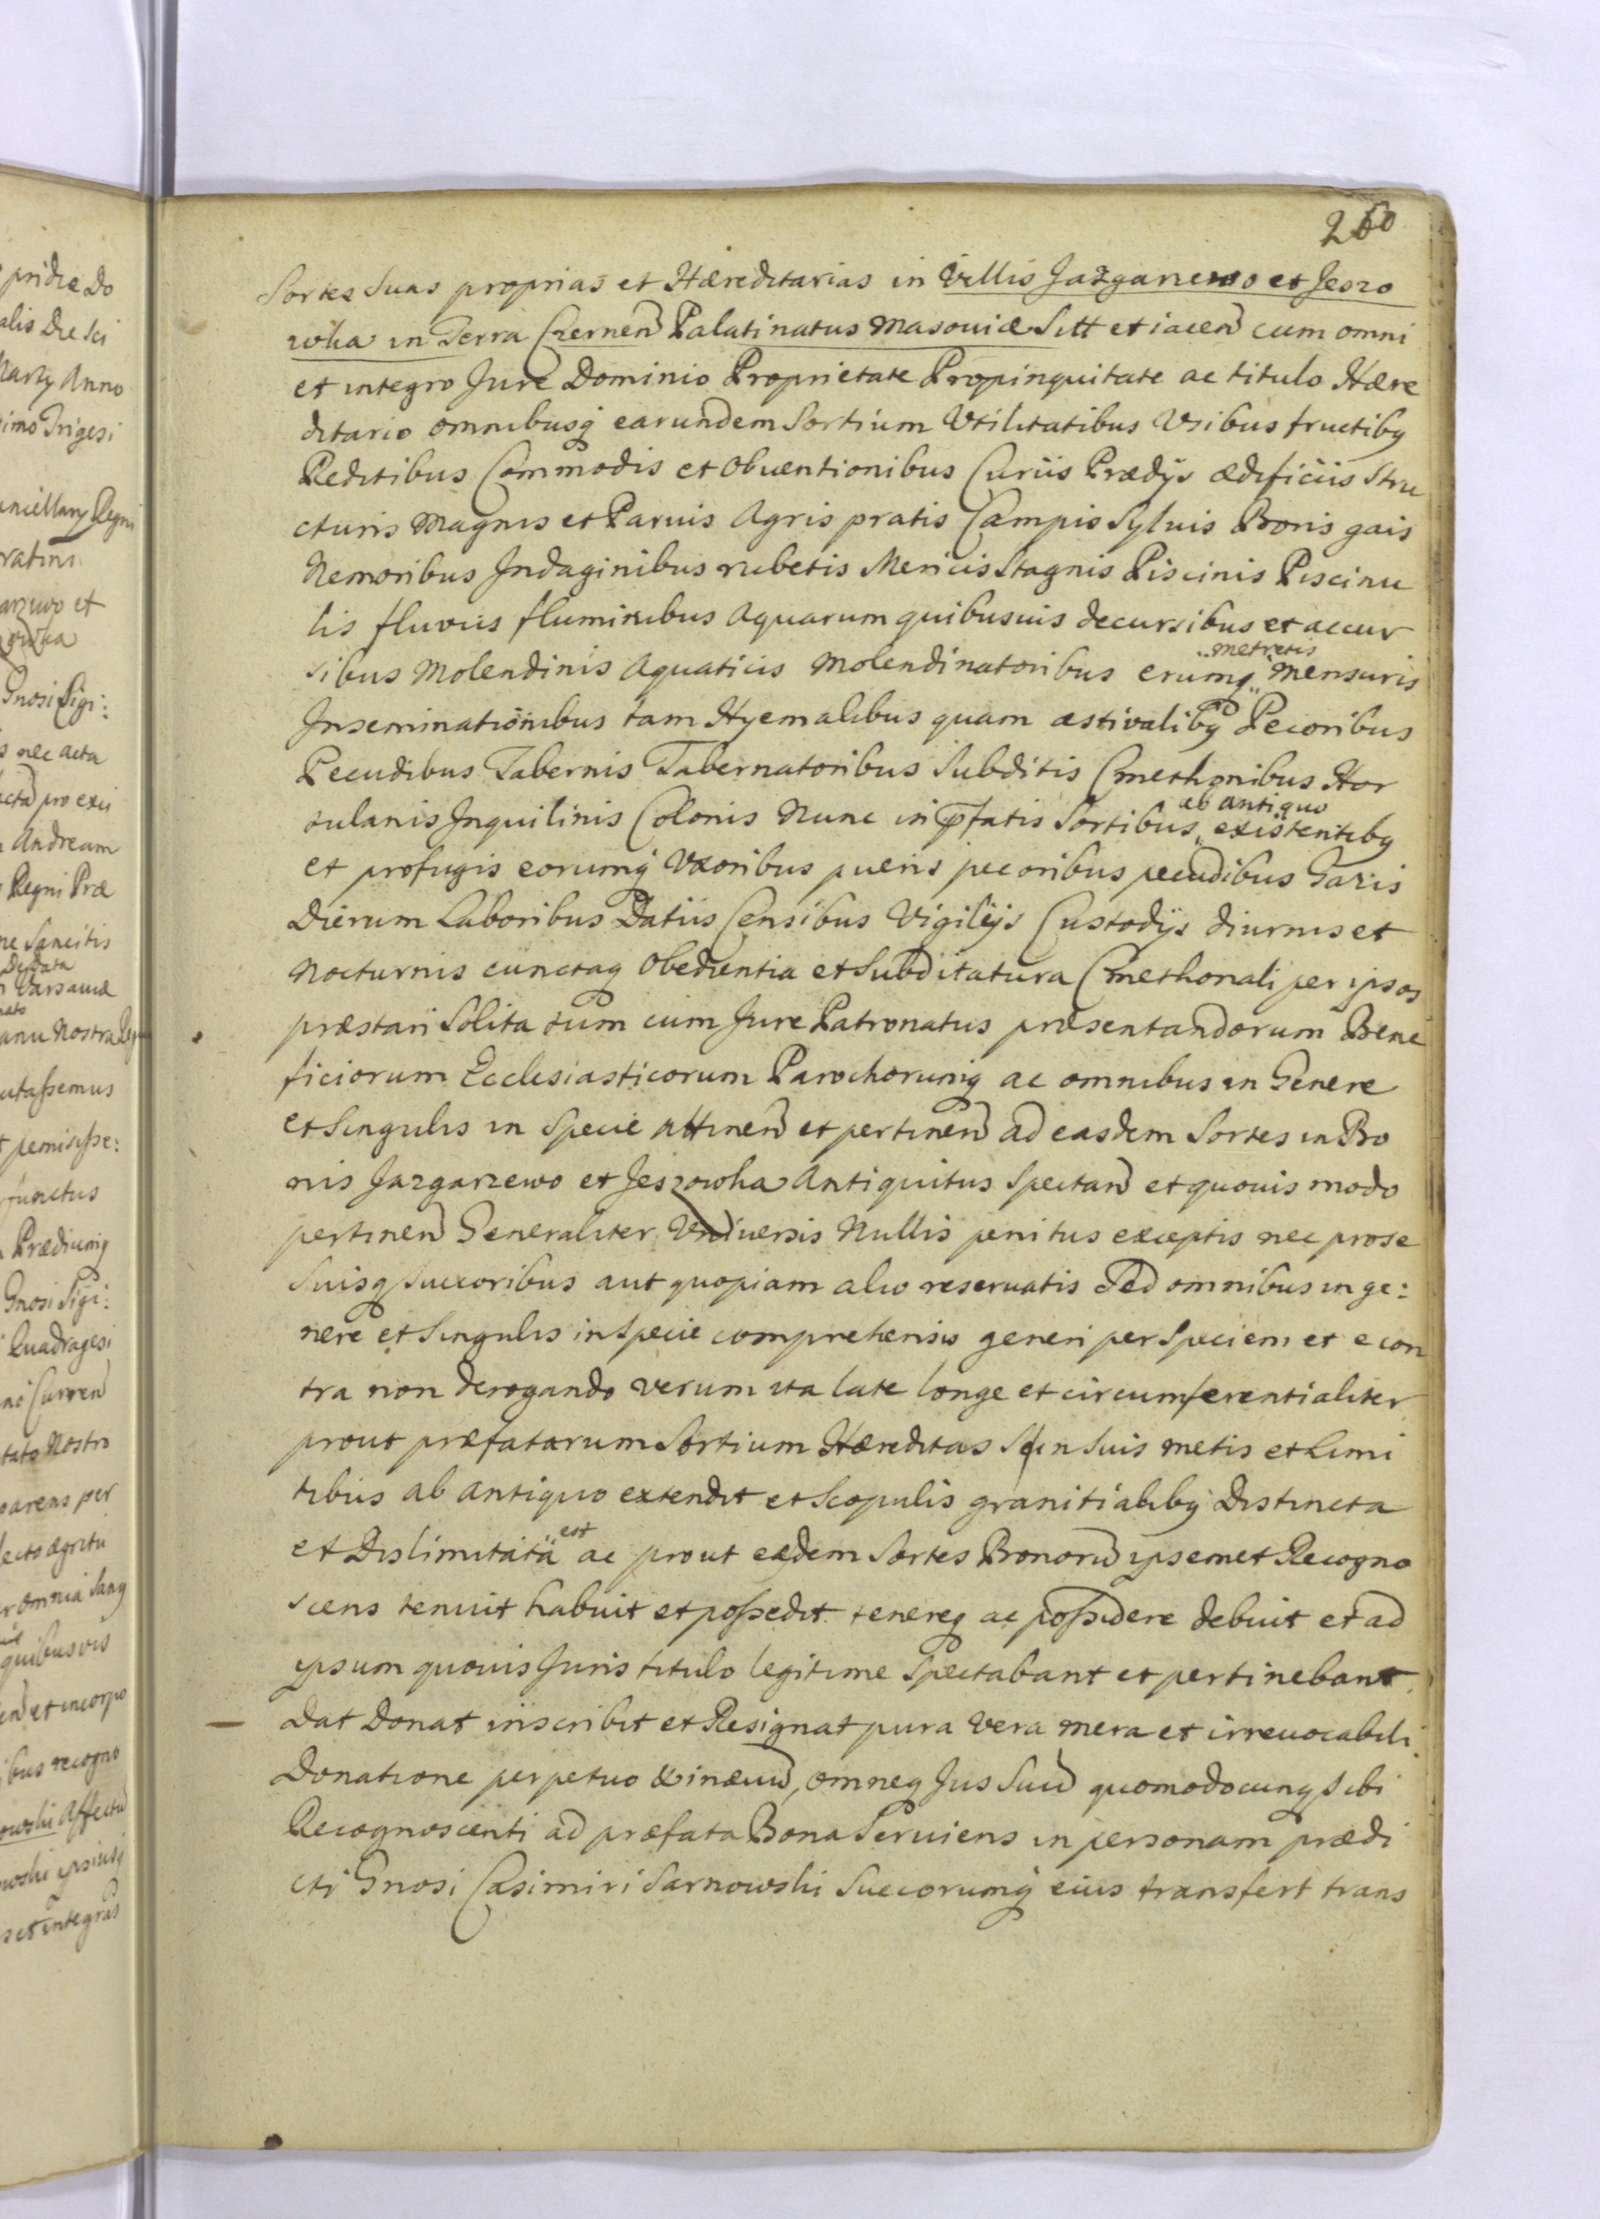 260
Sortes Suas proprias et Hæreditarias in Villis Jazgarzewo et Jeszo
wka in Terra Czernen Palatinatus Masouiæ Sitt et iacen cum omni
et integro Jure Dominio Proprietate Propinquitate ac titulo Hære
ditario omnibusq earundem Sortium Vtilitatibus Vsibus fructibq
Reditibus Commodis et Obuentionibus Curiis Prædijs ædificiis Stru
cturis Magnis et Paruis Agris pratis Campis Syluis Boris gais
Nemoribus Indaginibus rubetis Mericis Stagnis Piscinis Piscinu
lis fluviis fluminibus Aquarum quibusuis decursibus et accur
sibus Molendinis Aquaticis Molendinatoribus erumq metretis Mensuris
Inseminationibus tam Hyemalibus quam æstivalibq Pecoribus
Pecudibus Tabernis Tabernatoribus Subditis Cmethonibus Hor
tulanis Inquilinis Colonis Nunc in pfatis Sortibus ab antiquo existentibq
et profugis eorumq Vxoribus pueris pecoribus pecudibus Gazis
Dierum Laboribus Datiis Censibus Vigilijs Custodijs diurnis et
Nocturnis cunctaq Obedientia et Subditatura Cmethonali per ipsos
præstari Solita tum cum Jure Patronatus præsentandorum Bene
ficiorum Ecclesiasticorum Parochorumq ac omnibus in Genere
et Singulis in Specie Attinen et pertinen ad easdem Sortes in Bo
nis Jazgarzewo et Jeszowka Antiquitus Spectan et quouis modo
pertinen Generaliter Vniuersis Nullis penitus exceptis nec pro se
Suisq Succoribus aut quopiam alio reseruatis Sed omnibus in ge:
nere et Singulis in Specie comprehensis generi per Speciem et e con
tra non derogando verum ita late longe et circumferentialiter
prout præfatarum Sortium Hæreditas S in Suis metis et Limi
tibus ab Antiquo extendit et Scopulis granitialibq Distincta
et Dislimitata est ac prout eædem Sortes Bonoru ipsemet Recogno
scens tenuit habuit et possedit tenereq ac possidere debuit et ad
ipsum quouis Juris titulo legitime Spectabant et pertinebant
Dat Donat inscribit et Resignat pura Vera Mera et irreuocabili
Donatione perpetuo & in æuu, omneq Jus Suu quomodocunq Sibi
Recognoscenti ad præfata Bona Seruiens in personam prædi
cti Gnosi Casimiri Sarnowski Succorumq eius transfert trans